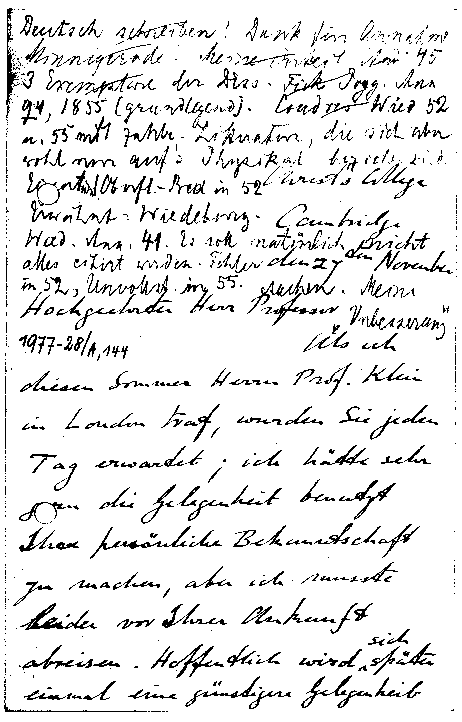 Deutsch schreiben! Dank für Annahme
Minnigerode. Meine Arbeit Ann 45
3 Exemplare der Diss. Fick Pogg. Ann
94, 1855 (grundlegend). Wied 52
u. 55 mit Literatur, die sich aber
wohl nur auf's Physikal bezieht
in 52 Christ's College
Erwähnt Wiedeburg. Cambridge
Wied. Ann. 41. Es soll natürlich nicht
alles citirt werden. Fehler den 27ten November
in 52, Unvollst. in 55. Meine
Hochgeehrter Herr Professor Verbesserung
1977-28/A,144 Als ich
diesen Sommer Herrn Prof. Klein
in London traf, wurden Sie jeden
Tag erwartet; ich hätte sehr
gern die Gelegenheit benutzt
Ihre persönliche Bekanntschaft
zu machen, aber ich musste
leider vor Ihrer Ankunft
abreisen. Hoffentlich wird sich später
einmal eine günstigere Gelegenheit